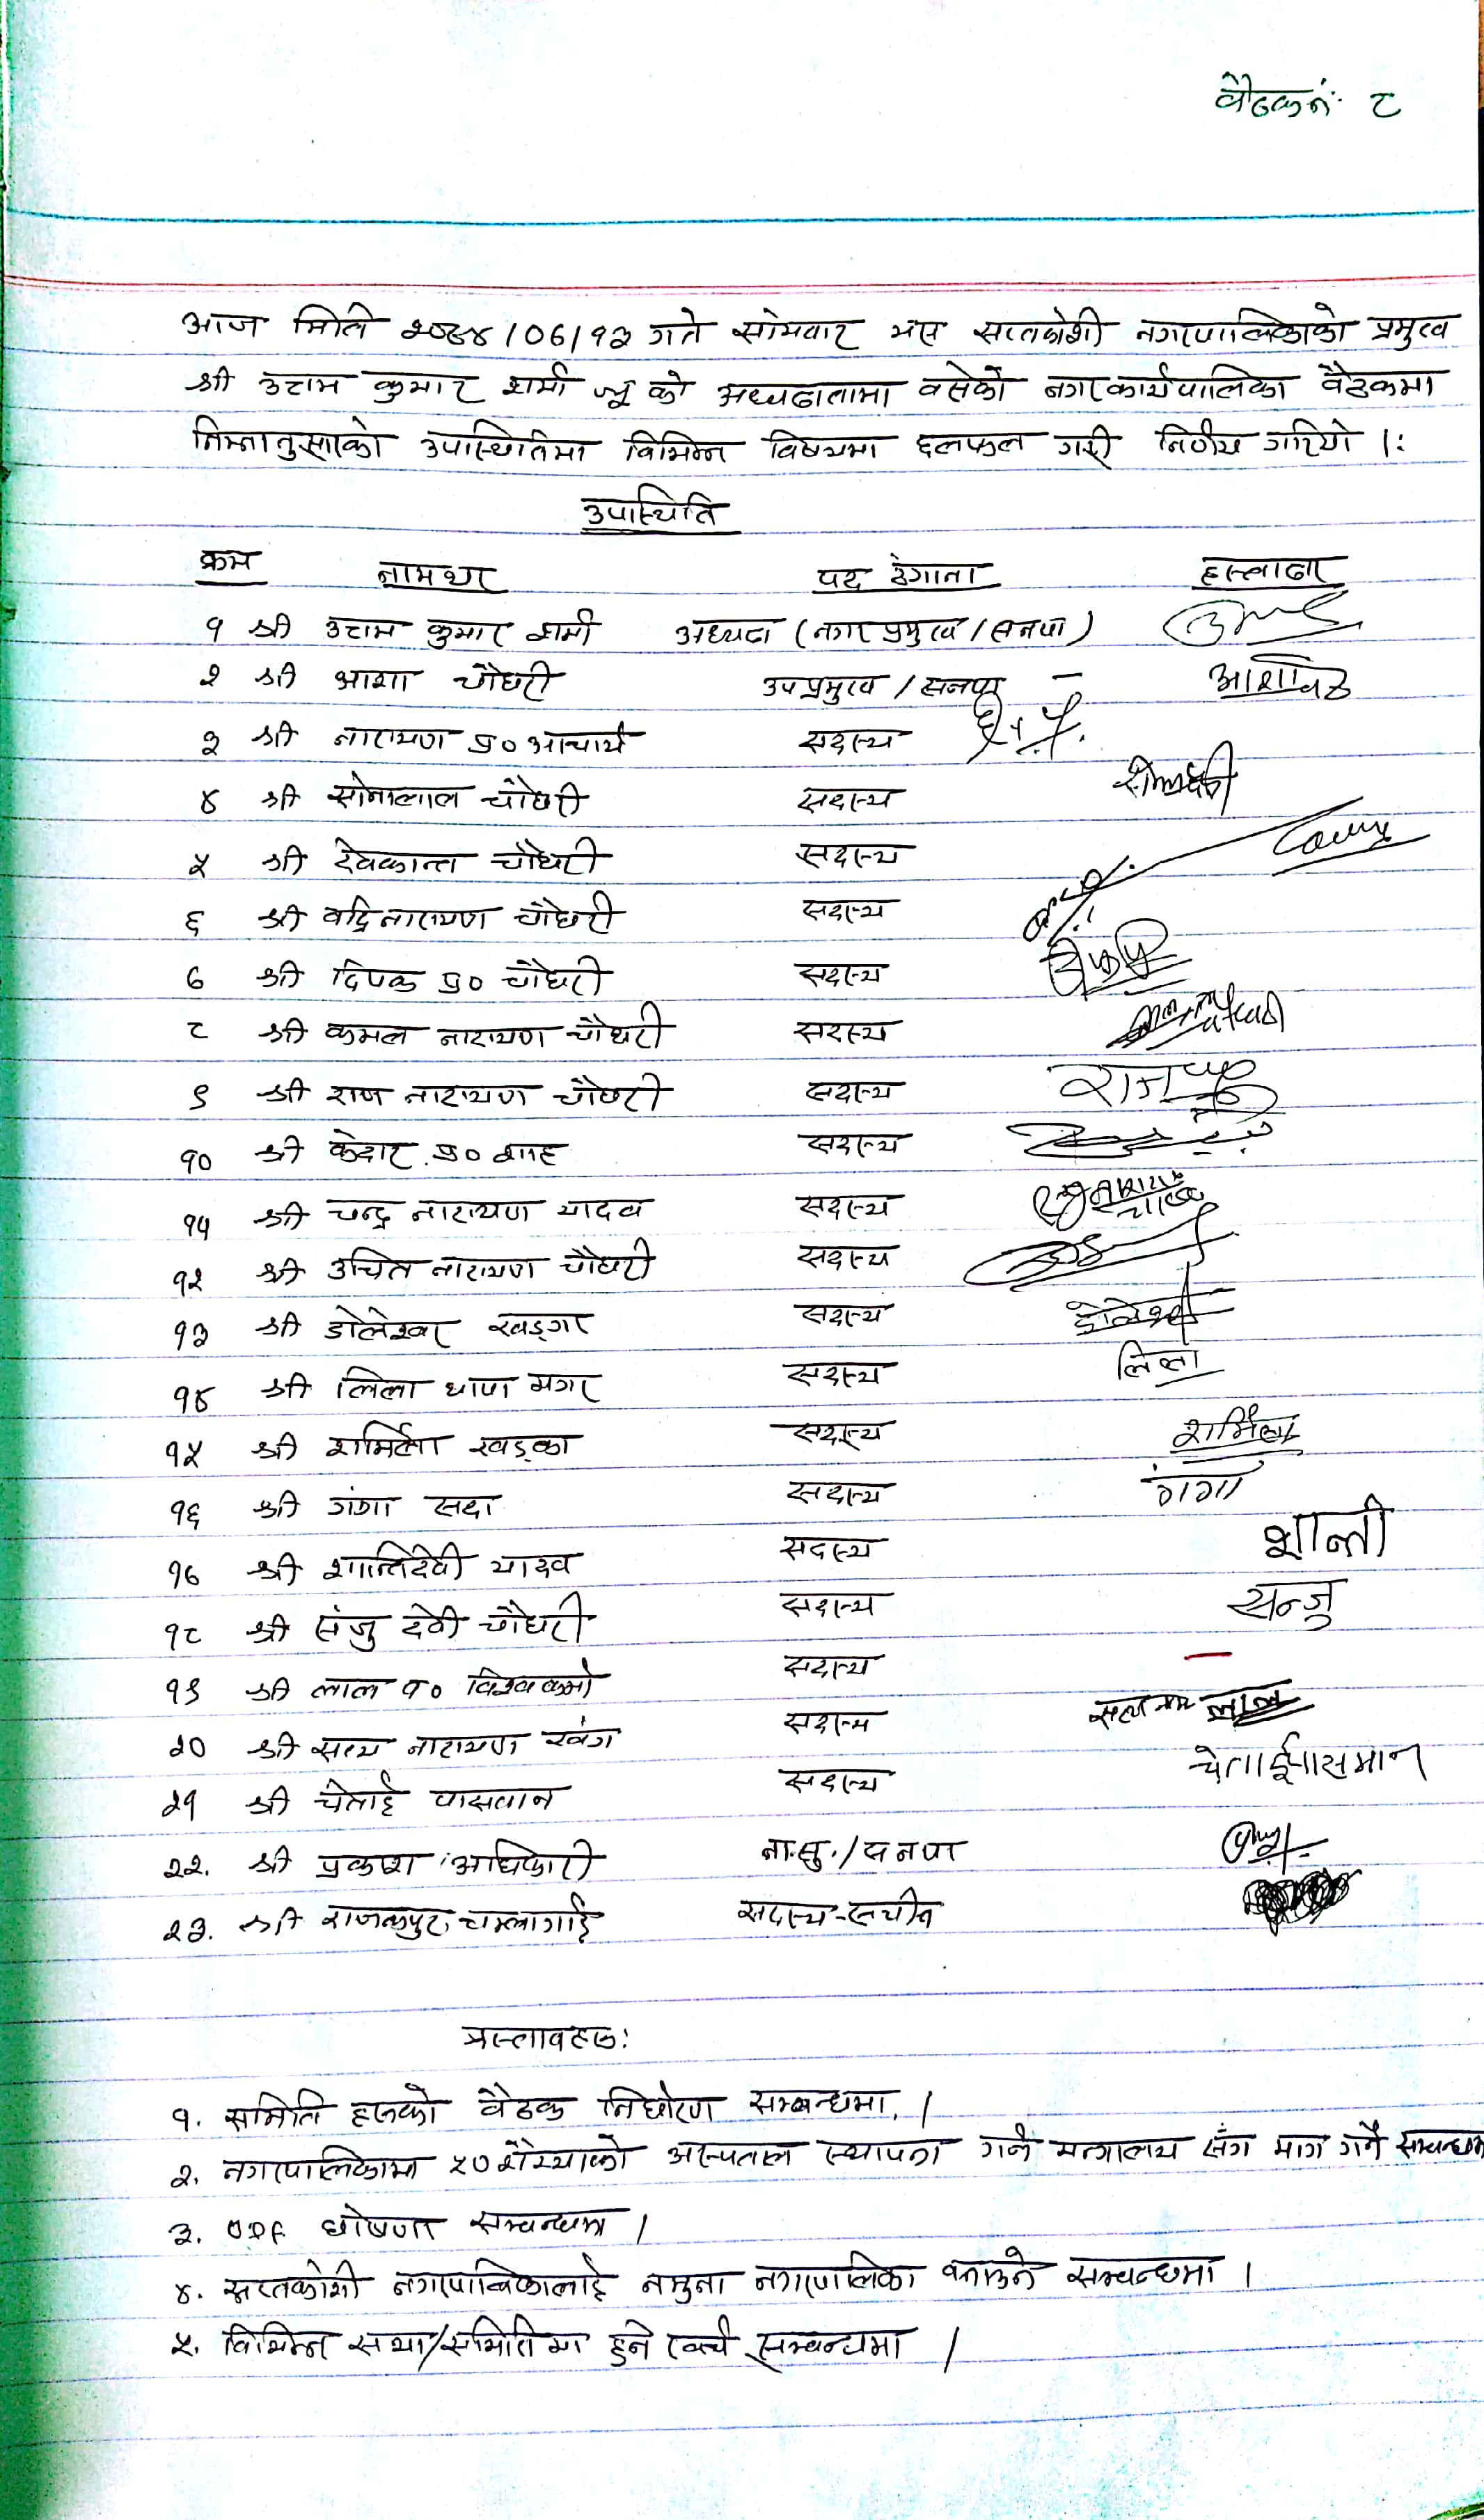 बैठक नं. ८
आज मिति २०७४/०६/१३ गते सोमवार यस सप्तकोशी नगरपालिकाको प्रमुख
श्री उत्तम कुमार शर्मा ज्यू को अध्यक्षतामा बसेको नगरकार्यपालिका बैठकमा
निम्नानुसारको उपस्थितिमा विभिन्न विषयमा छलफल गरी निर्णय गरियो ।:
उपस्थिति
क्रम नामथर पद ठेगाना हस्ताक्षर
१ श्री उत्तम कुमार शर्मा अध्यक्ष (नगर प्रमुख / सनपा)
२ श्री आशा चौधरी उपप्रमुख / सनपा -
३ श्री नारायण प्र० आचार्य सदस्य
४ श्री सोनालाल चौधरी सदस्य
५ श्री देवकान्त चौधरी सदस्य
६ श्री बद्रिनारायण चौधरी सदस्य
७ श्री दिपक प्र० चौधरी सदस्य
८ श्री कमल नारायण चौधरी सदस्य
९ श्री राज नारायण चौधरी सदस्य
१० श्री केदार प्र० शाह सदस्य
११ श्री चन्द्र नारायण यादव सदस्य
१२ श्री उचित नारायण चौधरी सदस्य
१३ श्री डोलेश्वर खड्गा सदस्य
१४ श्री लिला थापा मगर सदस्य लिला
१५ श्री शर्मिला खड्का सदस्य शर्मिला
१६ श्री गंगा सदा सदस्य गंगा
१७ श्री शान्तिदेवी यादव सदस्य शान्ती
१८ श्री संजु देवी चौधरी सदस्य सन्जु
१९ श्री लाल ब० विश्वकर्मा सदस्य -
२० श्री सत्य नारायण खंग सदस्य
२१ श्री चेताई पासवान सदस्य चेताई पासमान
२२. श्री प्रकाश अधिकारी ना.सु./सनपा
२३. श्री राजकपुर चम्लागाई सदस्य-सचीव
प्रस्तावहरु:
१. समिति हरुको बैठक निर्धारण सम्बन्धमा ।
२. नगरपालिकामा ५० शैय्याको अस्पताल स्थापना गर्न मन्त्रालय सँग माग गर्ने सम्बन्धमा
३. ODF घोषणा सम्बन्धमा ।
४. सप्तकोशी नगरपालिकालाई नमुना नगरपालिका बनाउने सम्बन्धमा ।
५. विभिन्न सभा/समितिमा हुने खर्च सम्बन्धमा ।